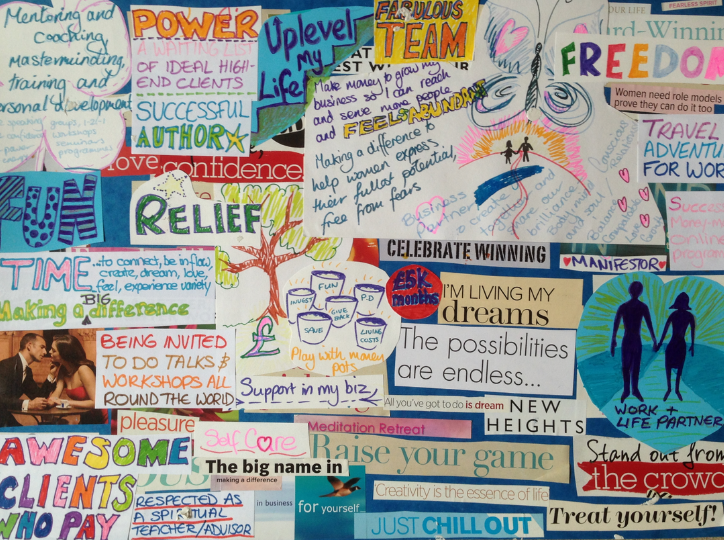 Mentoring and
Coaching
Masterminding,
training and
personal development
POWER
A WAITING LIST
OF IDEAL HIGH-
END CLIENTS
SUCCESSFUL
AUTHOR
love
confidence
Uplevel
My
Life!
FABULOUS
TEAM
Make money to grow my
business so I can reach
and serve more people
and FEEL ABUNDANT
Making a difference to
help women express
their fullest potential,
free from fears
Business
Partner
create
together and
brilliance
Body mind soul
FREEDOM
Women need role models
prove they can do it too
TRAVEL
ADVENTU
FOR WOR
Success
Money-m
online
program
FUN
RELIEF
CELEBRATE WINNING
MANIFESTOR
TIME
..to connect, be in flow
create, dream, love,
feel, experience variety
Making a BIG difference
FUN
INVEST
P.D
GIVE
BACK
SAVE
LIVING
COSTS
£
Play with money
pots
£5K
months
I'M LIVING MY
dreams
The possibilities
are endless...
BEING INVITED
TO DO TALKS &
WORKSHOPS ALL
ROUND THE WORLD
Support in my biz
All you've got to do is dream
NEW
HEIGHTS
WORK +
LIFE PARTNER
pleasure
Self Care
Meditation Retreat
Raise your game
Stand out from
the crowd
AWESOME
CLIENTS
WHO PAY
The big name in
making a difference
RESPECTED AS
A SPIRITUAL
TEACHER/ADVISOR
in business
for yourself
'Creativity is the essence of life
JUST CHILL OUT
Treat yourself!